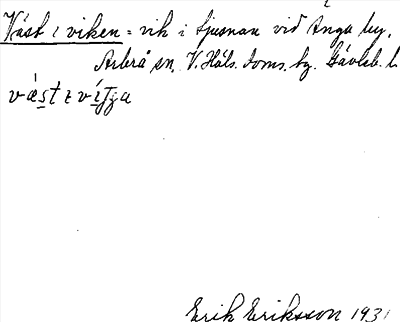 Väst i viken = vik i Ljusnan vid Änga by,
Arbrå sn. V. Häls. doms. hg. Gävleb. l.
Erik Eriksson 1931